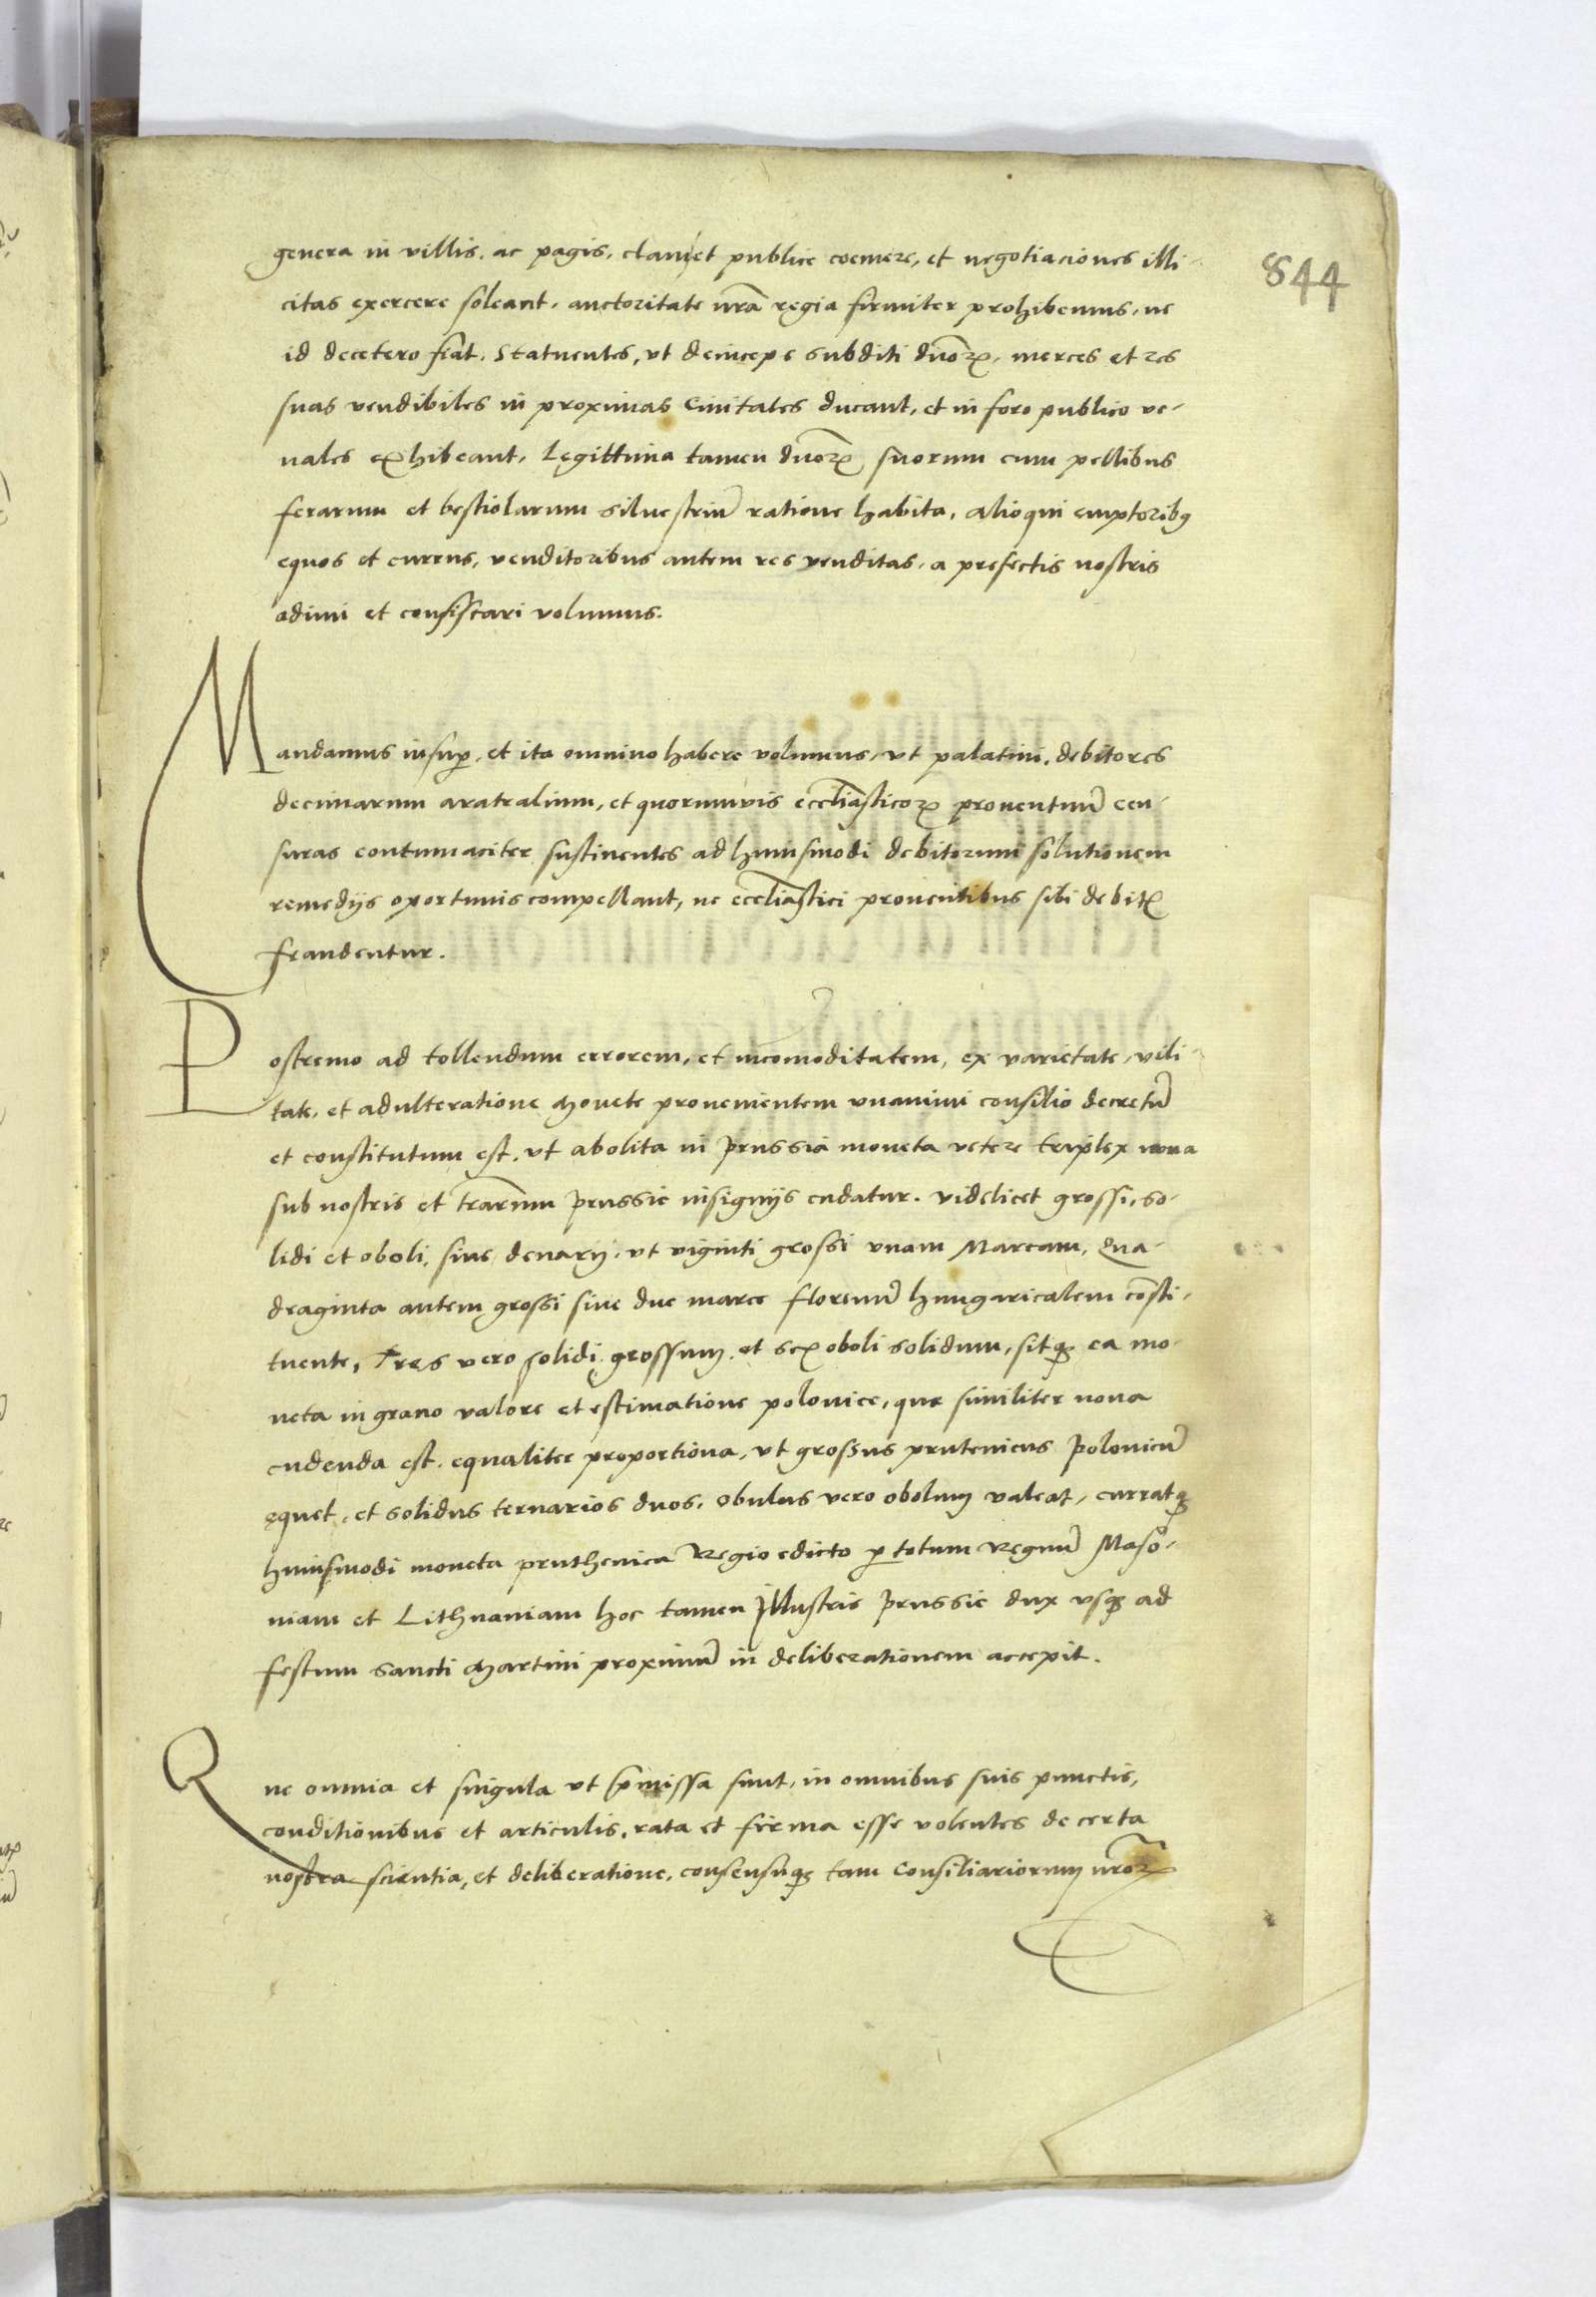 844
genera in villis, ac pagis, clam et publice coemere, et negotiaciones illi-
citas exercere soleant, auctoritate nr̃a regia firmiter prohibemus, ne
id decetero fiat. Statuentes, vt deinceps subditi dñoꝝ, merces et res
suas vendibiles in proximas Ciuitates ducant, et in foro publico ve-
nales exhibeant, Legittima tamen dñoꝝ suorum cum pellibus
ferarum et bestiolarum siluestriũ ratione habita, alioqui emptoribꝫ
equos et currus, venditoribus autem res venditas, a prefectis nostris
adimi et confiscari volumus.
Mandamus insuꝑ, et ita omnino habere volumus, vt palatini, debitores
decimarum aratralium, et quorumuis eccl̃iasticoꝝ prouentuũ cen-
suras contumaciter sustinentes ad huiusmodi debitorum solutionem
remedijs oportunis compellant, ne eccl̃iastici prouentibus sibi debitꝭ
fraudentur.
Postremo ad tollendum errorem, et incomoditatem, ex varietate, vili-
tate, et adulteratione Monete prouenientem vnanimi consilio decretũ
et constitutum est, vt abolita in Prussia moneta vetere triplex noua
sub nostris et tr̃arum Prussie insignijs cudatur. videlicet grossi, so-
lidi et oboli, siue denarij, vt viginti grossi vnam Marcam, Qua-
draginta autem grossi siue due marce florenũ hungaricalem cõsti-
tuente, Tres vero solidi grossum, et sex oboli solidum, sitqꝫ ea mo-
neta in grano valore et estimatione polonice, que similiter noua
cudenda est, equaliter proportiona, vt grossus prutenicus Polonicũ
equet, et solidus ternarios duos, obulus vero obolum valeat, curratqꝫ
huiusmodi moneta pruthenica Regio edicto ꝑ totum Regnũ Maso-
uiam et Lithuaniam hoc tamen Illustris Prussie dux vsqꝫ ad
festum sancti Martini proximũ in deliberationem accepit.
Que omnia et singula vt p̃missa sunt, in omnibus suis punctis,
conditionibus et articulis, rata et firma esse volentes de certa
nostra scientia, et deliberatione, consensuqꝫ tam Consiliariorum nr̃oꝝ